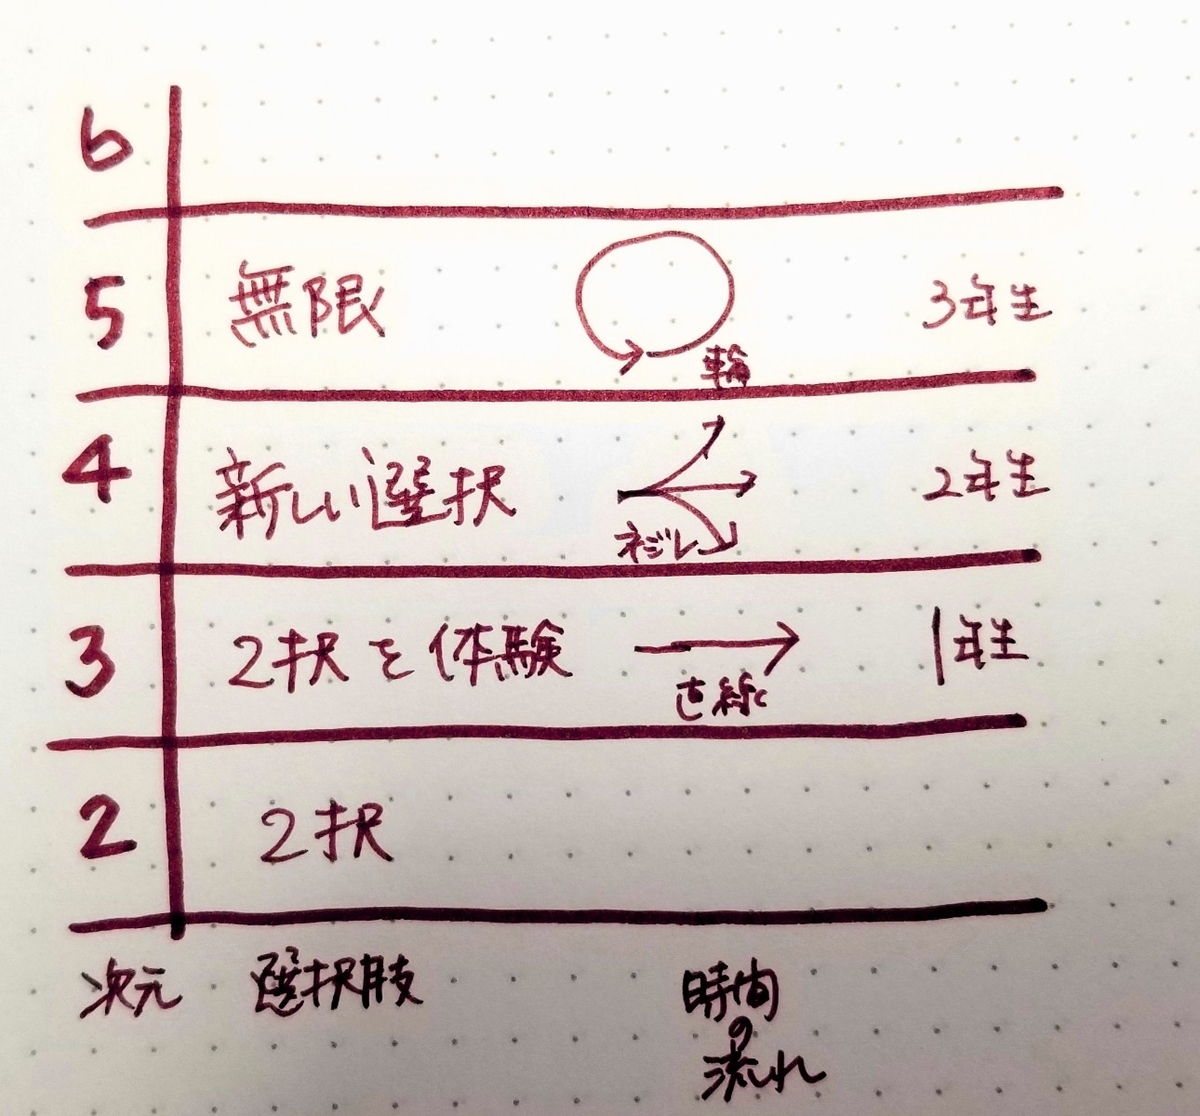 6
5 無限 輪 3年生
4 新しい選択 ネジレ 2年生
3 2択を体験 直線 1年生
2 2択
次元 選択肢 時間
の
流れ